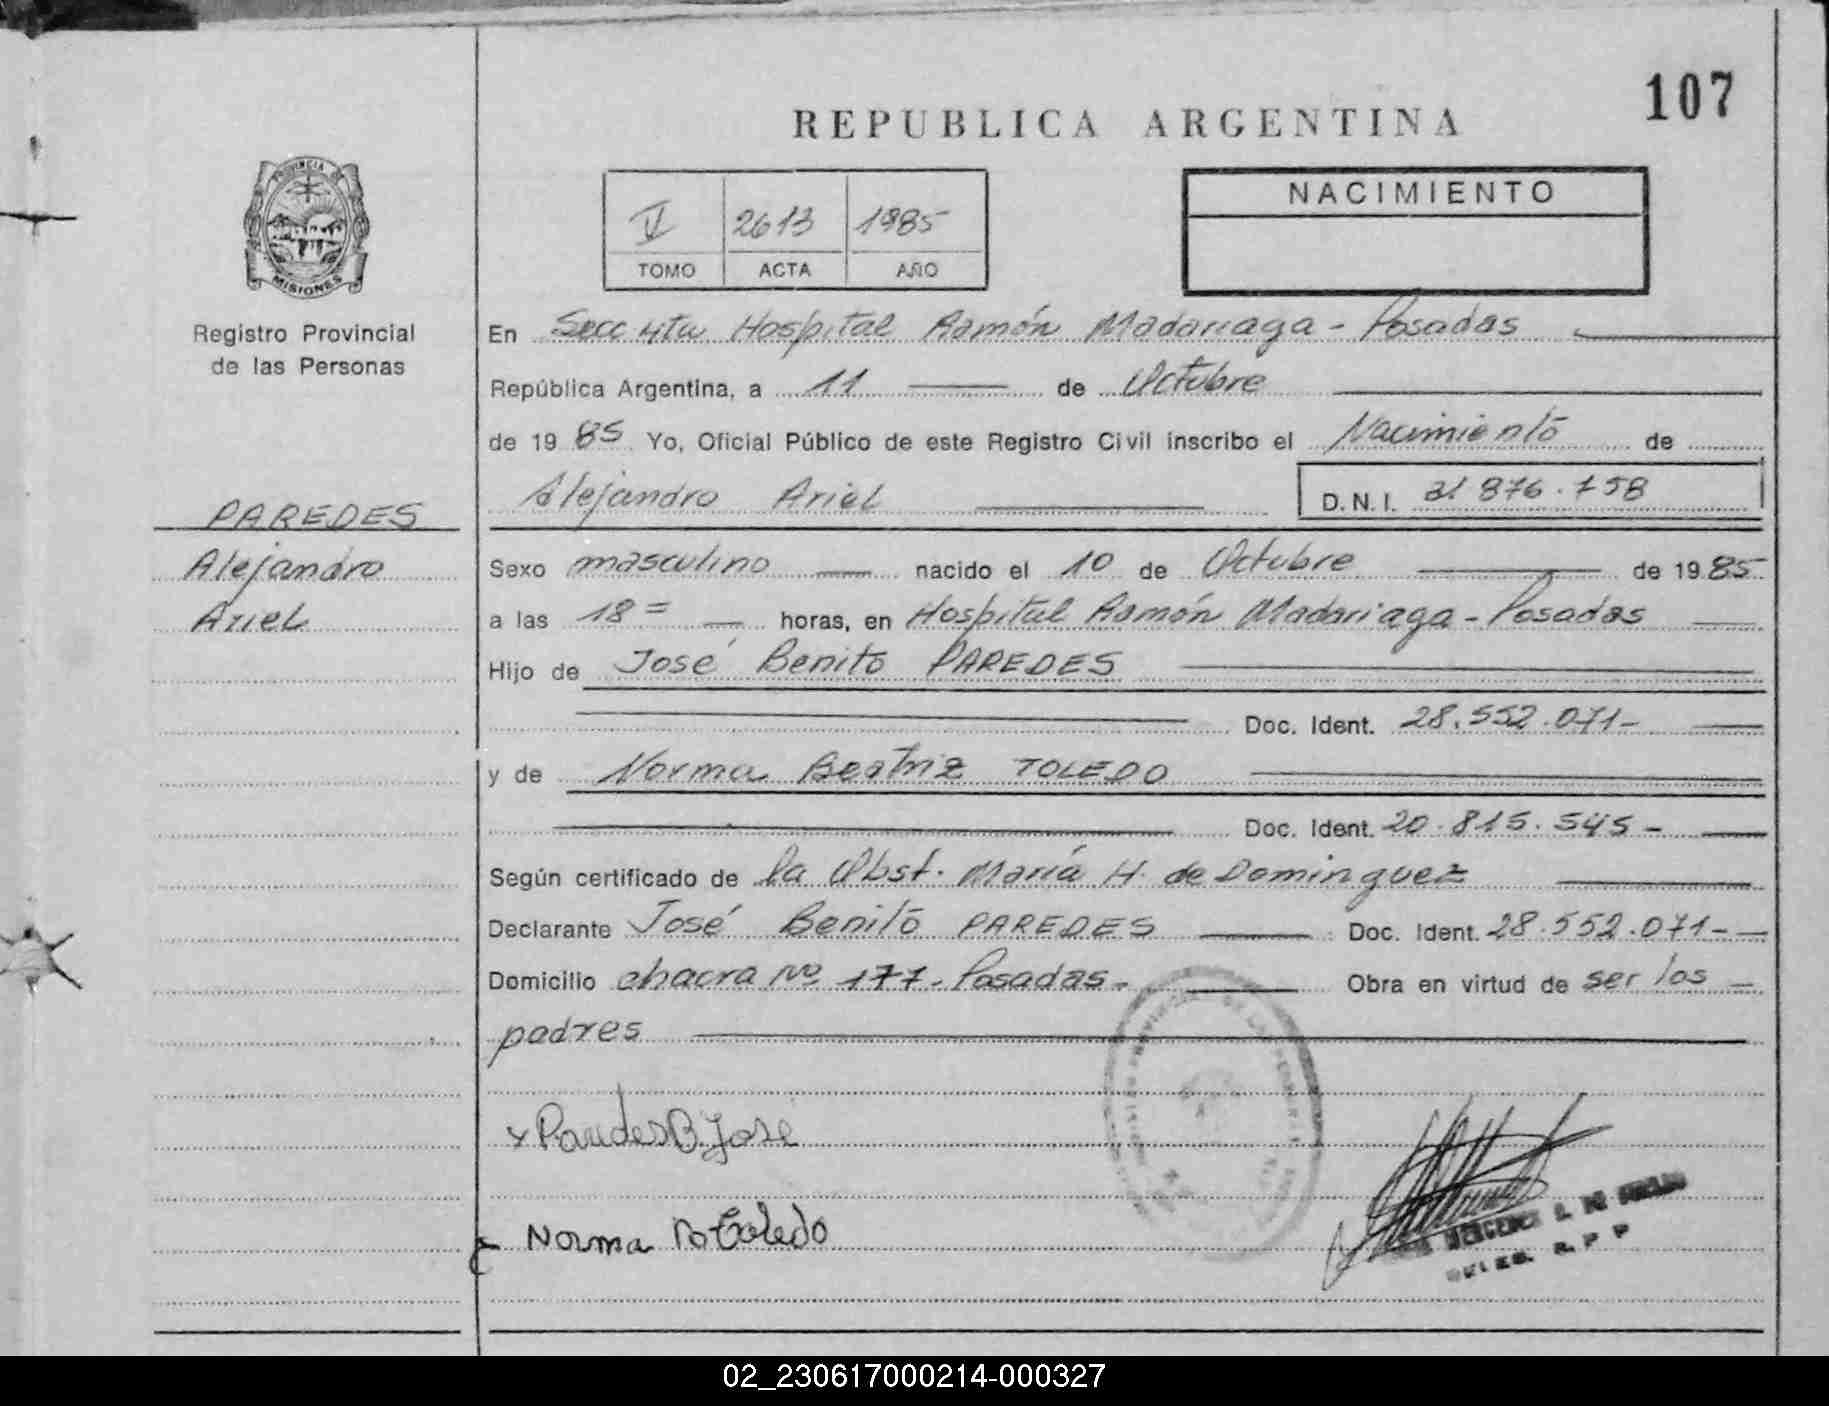 107
REPUBLICA ARGENTINA
PROVINCIA DE
MISIONES
Registro Provincial
de las Personas
V 2613 1985
TOMO ACTA AÑO
NACIMIENTO
En Secc 4ta Hospital Ramón Madariaga - Posadas
República Argentina, a 11 de Octubre
de 19 85 Yo, Oficial Público de este Registro Civil inscribo el Nacimiento de
Alejandro Ariel D.N.I. 31 876.758
PAREDES
Alejandro
Ariel
Sexo masculino nacido el 10 de Octubre de 19 85
a las 18 = horas, en Hospital Ramón Madariaga - Posadas
Hijo de José Benito PAREDES
Doc. Ident. 28.552.071-
y de Norma Beatriz TOLEDO
Doc. Ident. 20.815.545-
Según certificado de la Obst. María H. de Dominguez
Declarante José Benito PAREDES Doc. Ident. 28.552.071-
Domicilio chacra Nº 177- Posadas- Obra en virtud de ser los
padres
x Paredes B. José
Norma B Toledo
R. P P
02_230617000214-000327